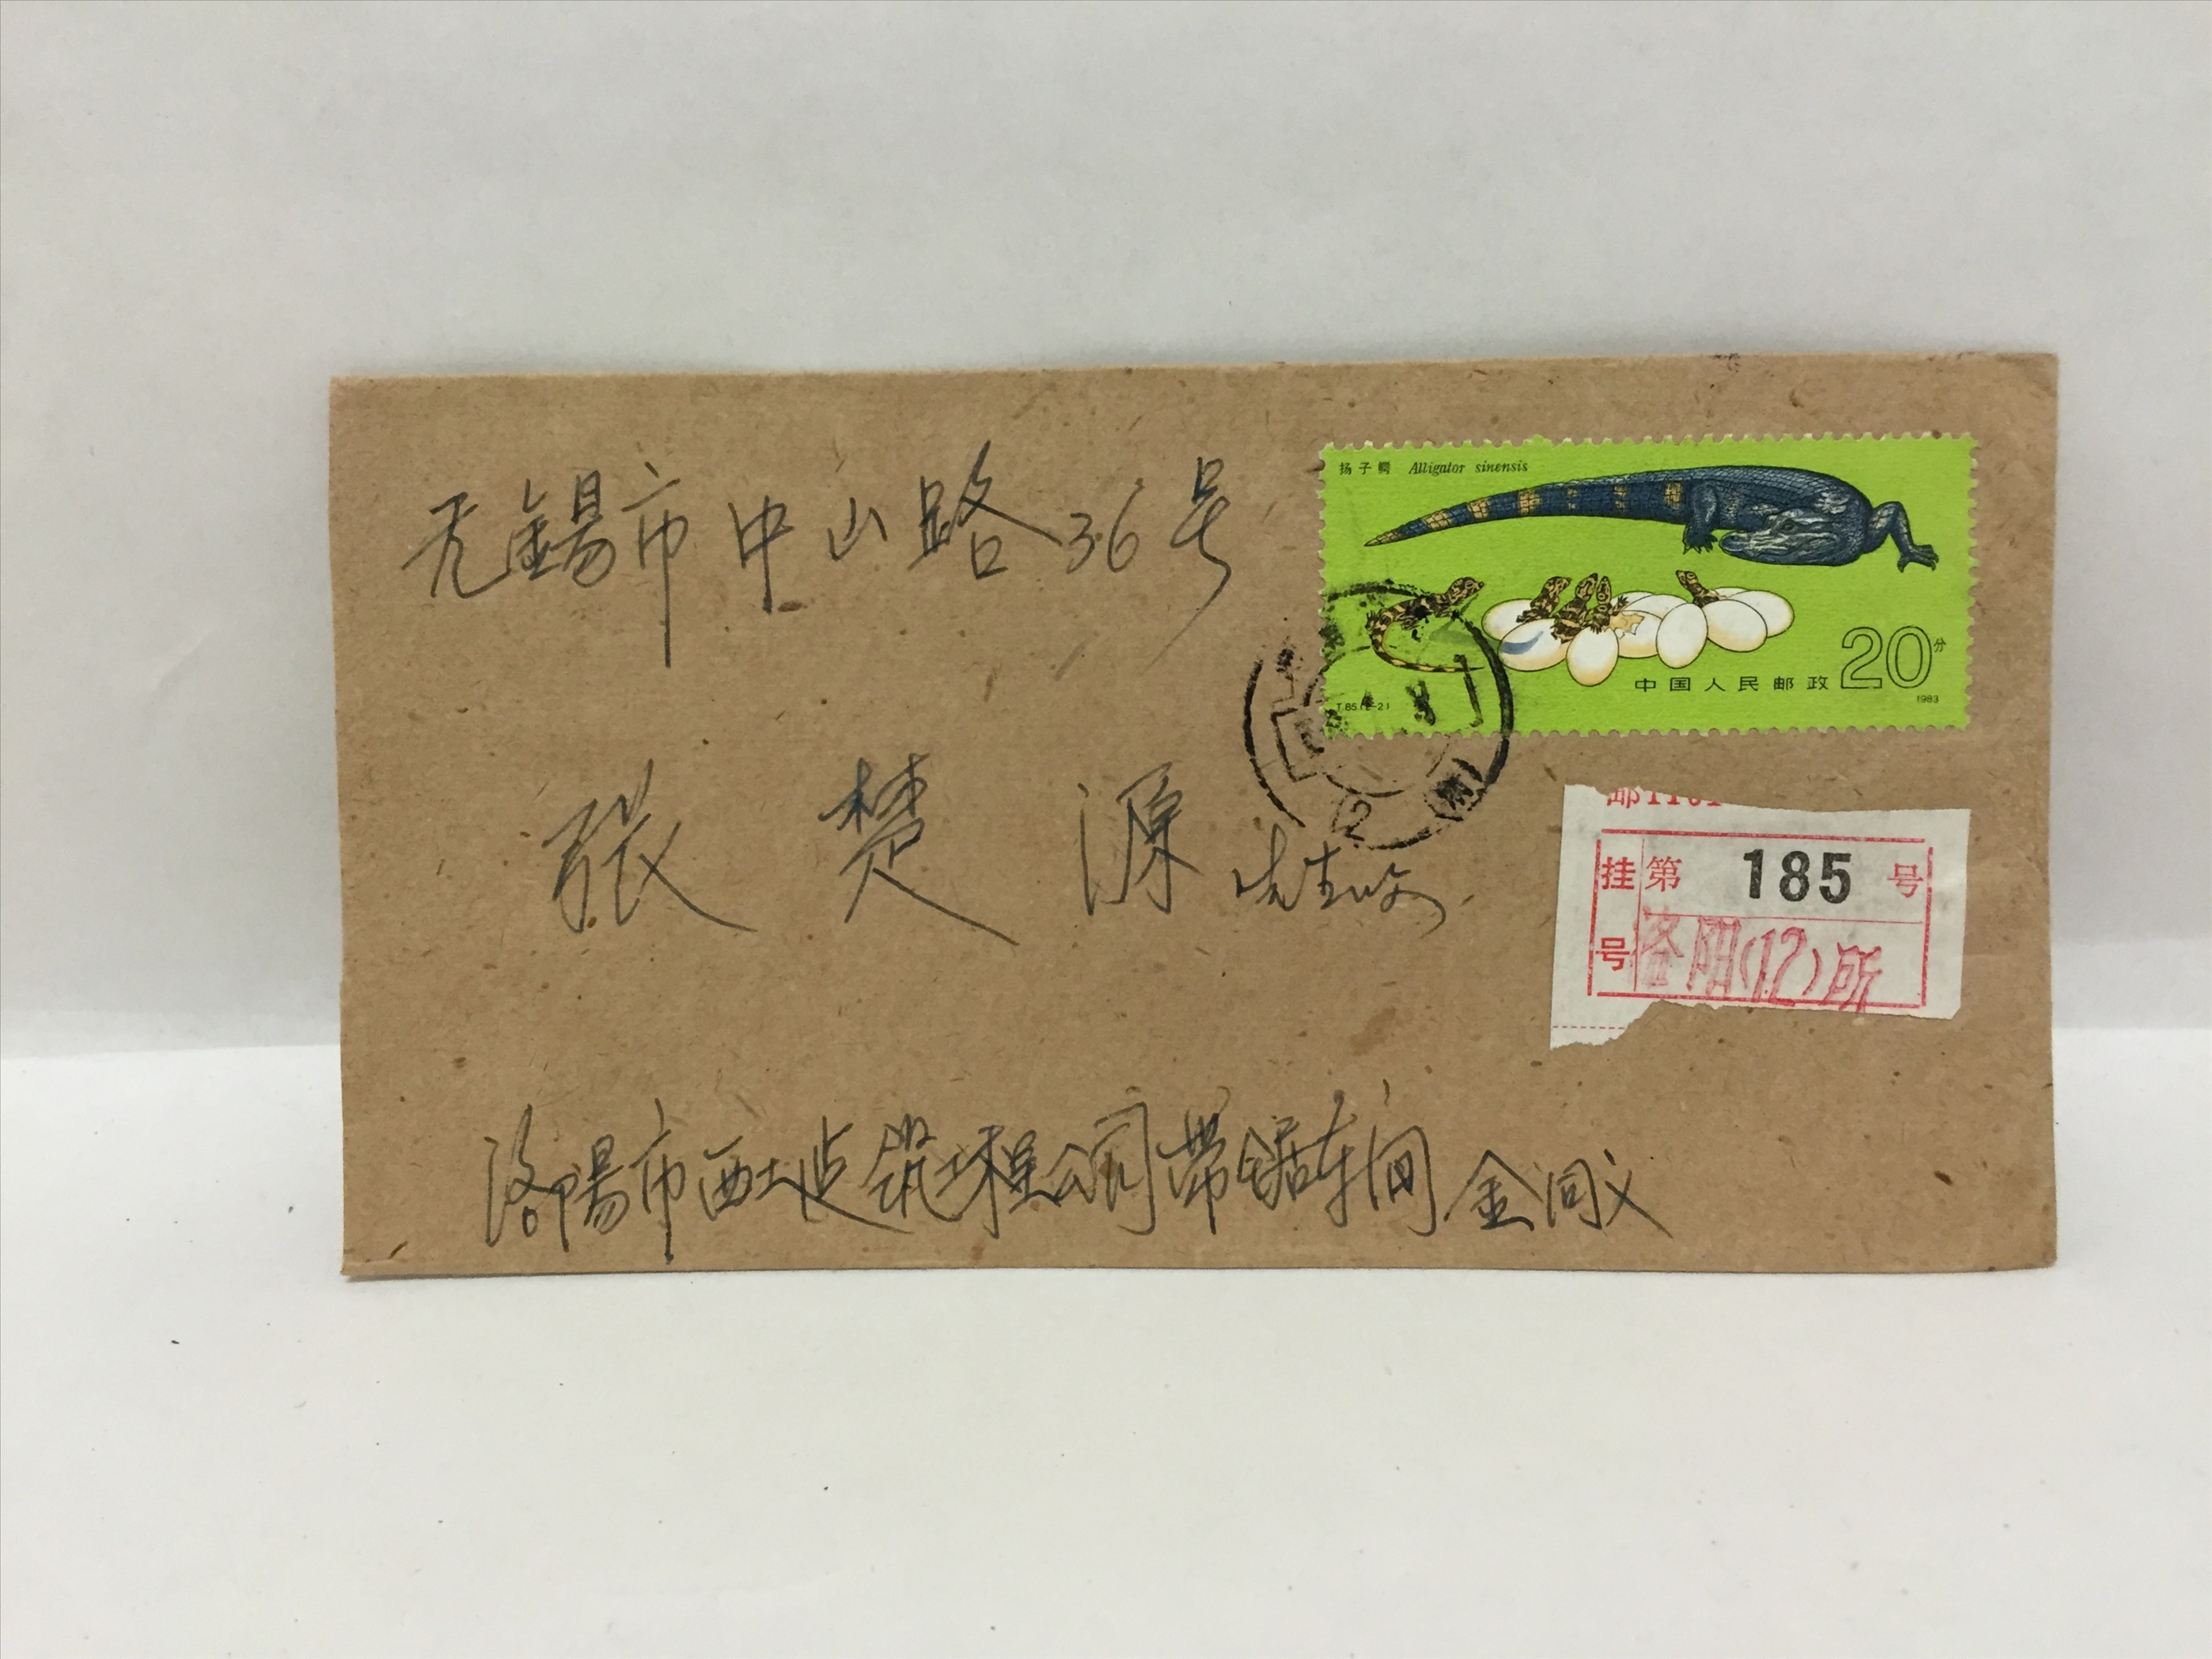 无錫市中山路36号
扬子鳄 Alligator sinensis
20分
中国人民邮政
T.85.(2-2)
1983
張楚源 先生收
挂号
第 185 号
洛阳(12)所
洛陽市西工建筑工程公司带锯车间 金同义